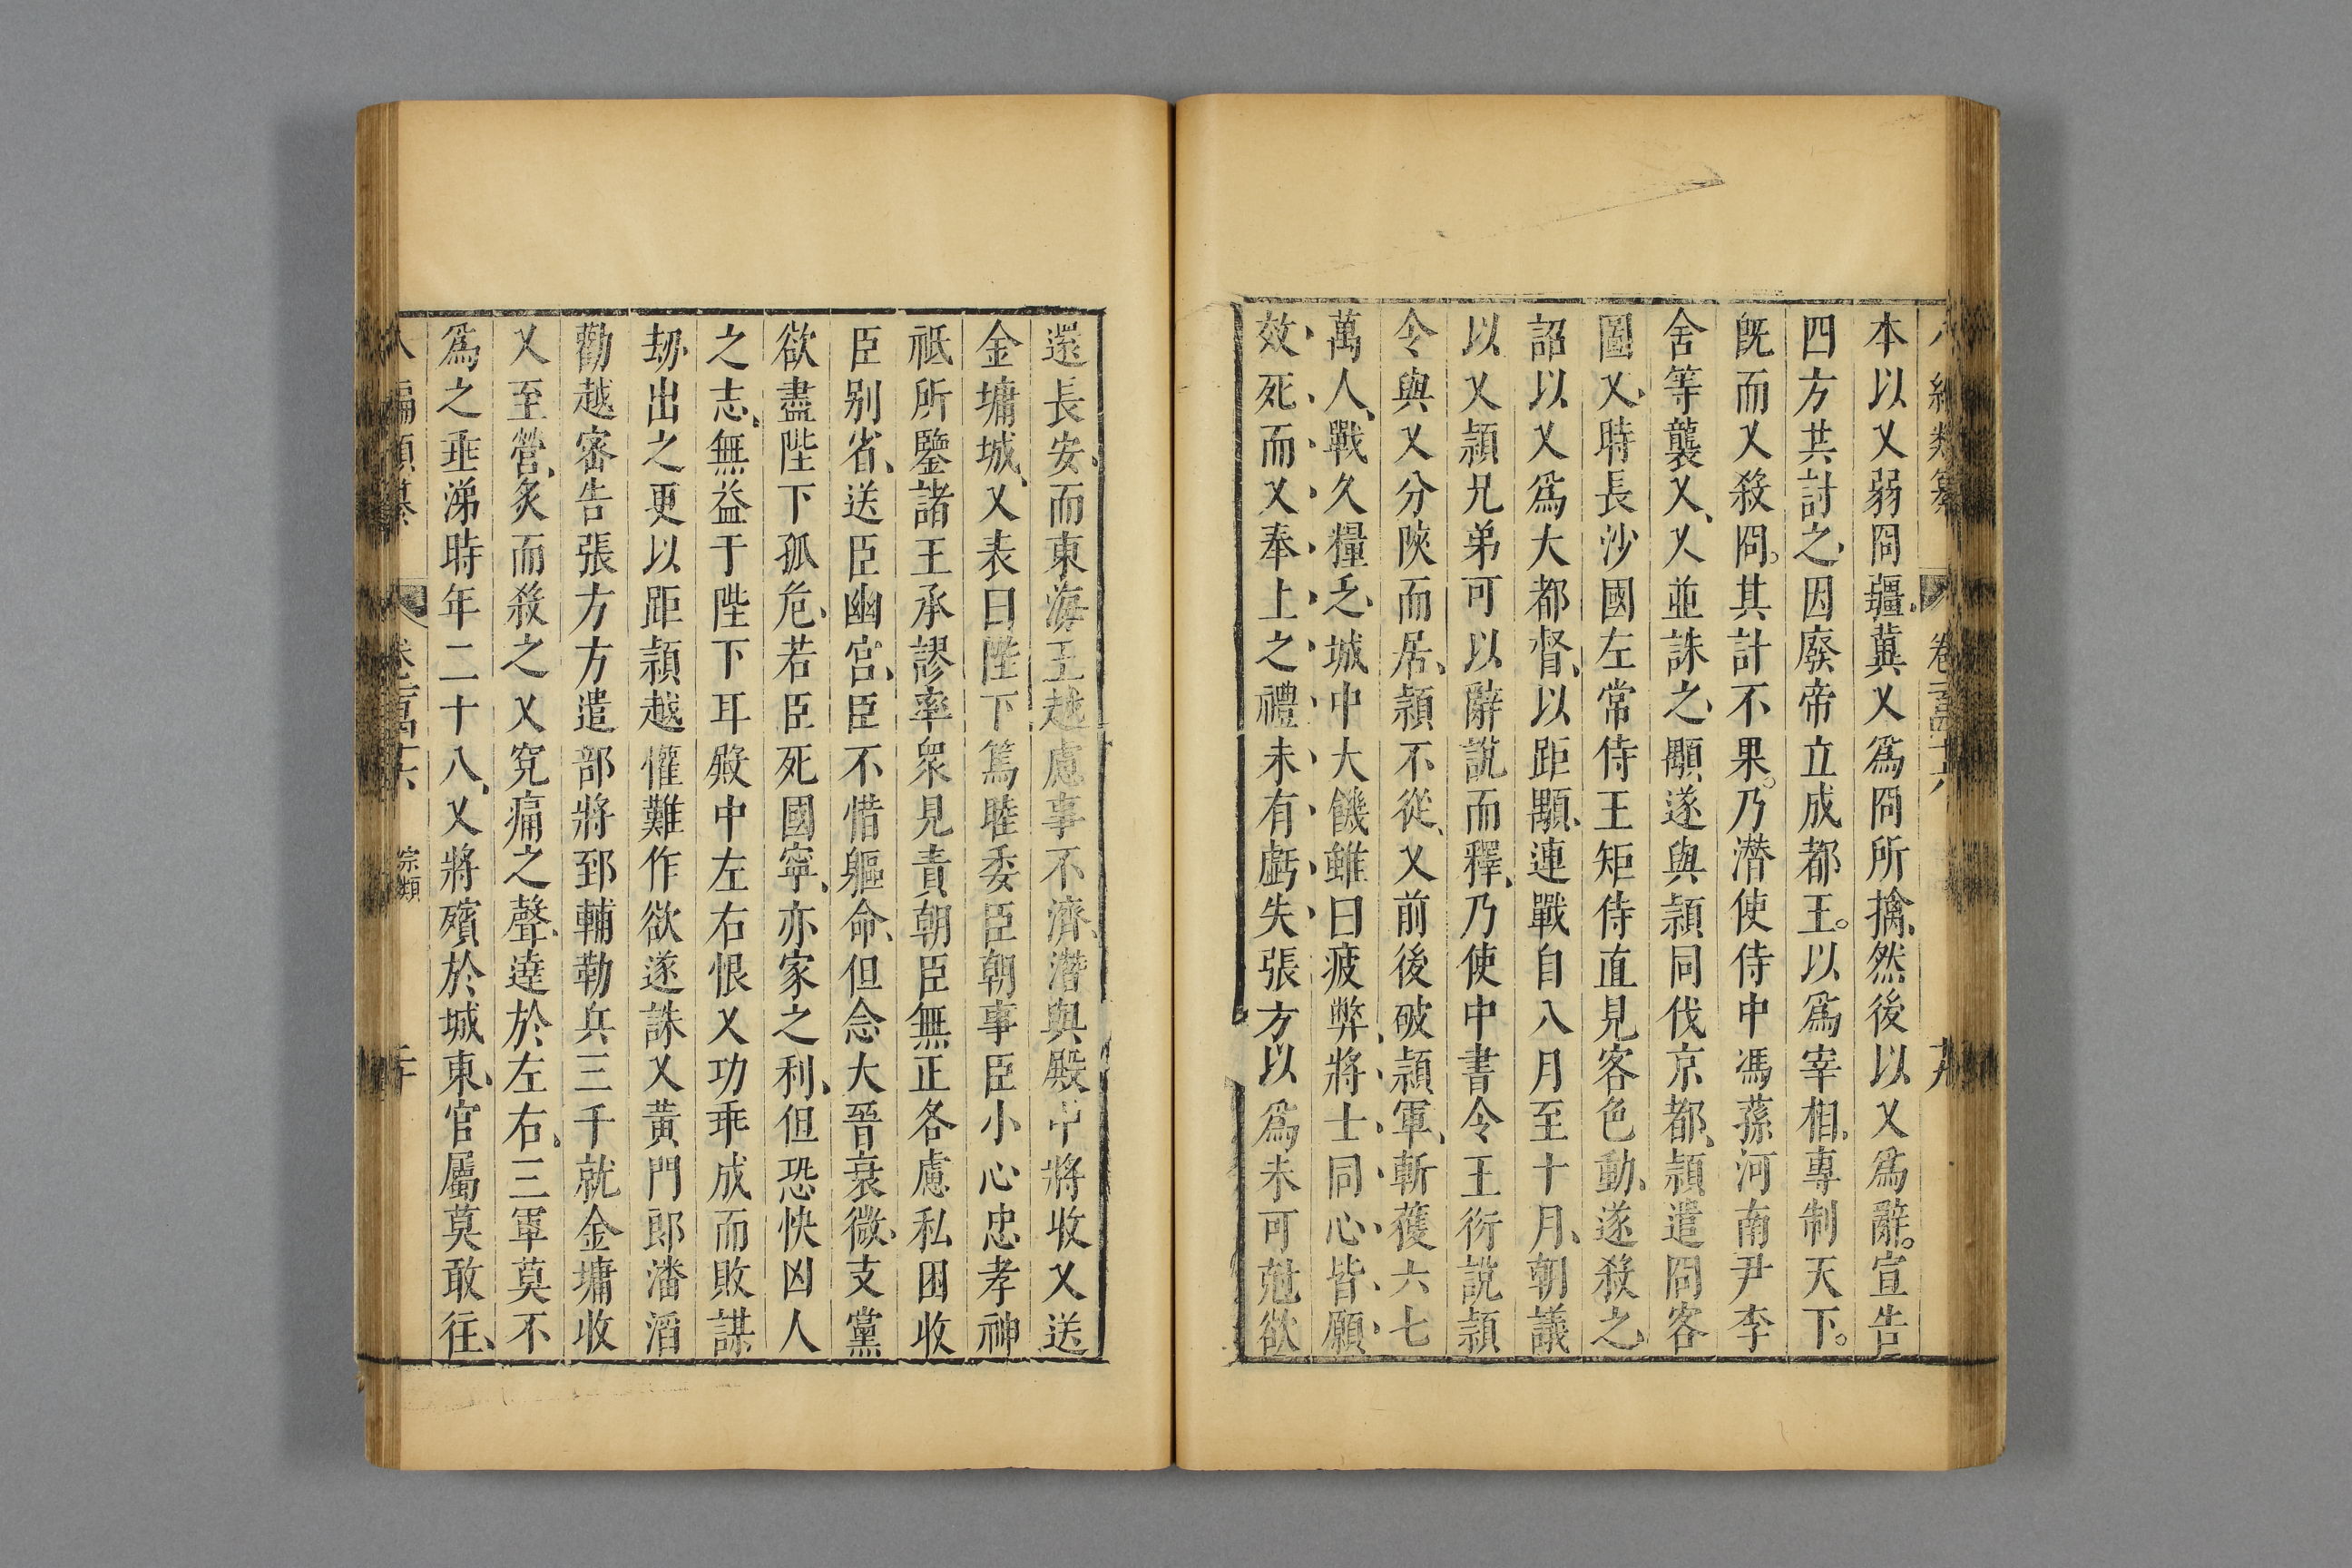 本以乂弱冏疆冀乂爲冏所擒、然後以乂爲辭。宣告
四方共討之、因廢帝立成都王。以爲宰相、專制天下。
既而乂殺冏。其計不果。乃潛使侍中馮蓀河南尹李
含等襲乂、乂並誅之、顒遂與穎同伐京都、穎遣冏客
圖乂、時長沙國左常侍王矩侍直見客色動、遂殺之、
詔以乂爲大都督、以距顒、連戰自八月至十月、朝議
以乂穎兄弟可以辭說而釋、乃使中書令王衍說穎
令與乂分陝而居、穎不從、乂前後破穎軍、斬獲六七
萬人、戰久糧乏、城中大饑雖曰疲弊、將士同心、皆願
效死而乂奉上之禮未有虧失張方以爲未可尅欲
還長安、而東海王越慮事不濟、潛與殿中將收乂送
金墉城、乂表曰陛下篤睦委臣朝事臣小心忠孝神
祇所鑒諸王承謬率衆見責朝臣無正各慮私困收
臣別省、送臣幽宮、臣不惜軀命、但念大晉衰微、支黨
欲盡陛下孤危、若臣死國寧、亦家之利、但恐快凶人
之志、無益于陛下耳殿中左右恨乂功垂成而敗謀
刼出之更以距穎越懼難作欲遂誅乂黃門郎潘滔
勸越密告張方方遣部將郅輔勒兵三千就金墉收
乂至營、炙而殺之乂冤痛之聲、達於左右、三軍莫不
爲之垂涕時年二十八、乂將殯於城東、官屬莫敢往、
宗類